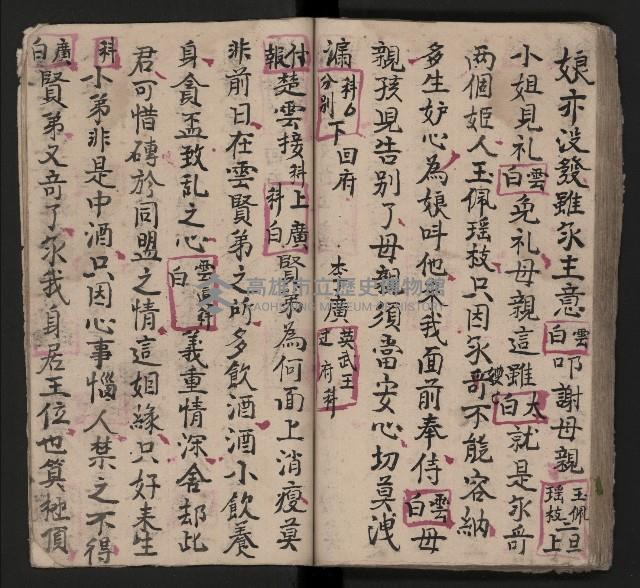 娘亦没發雖永主意雲白叩謝母親玉佩瑶枝上旦
小姐見礼雲白免礼母親這雖太白就是永哥
两個姬人玉佩瑶枝只因永哥不能容納
多生妒心為娘叫他不我面前奉侍雲白母
親孩兒告别了母親須當安心切莫洩
漏科分别下回府 李廣英武王过府科
付報楚雲接科上廣科白賢弟為何面上消瘦莫
非前日在雲賢弟之所多飲酒酒小飲養
身貪盃致乱之心雲白義重情深舍却此
君可惜磚於同盟之情這姻緣只好来生
科小弟非是中酒只因心事惱人禁之不得
廣白賢弟又奇了永我身居王位也算極頂
高雄市立歷史博物館
KAOHSIUNG MUSEUM OF HISTORY